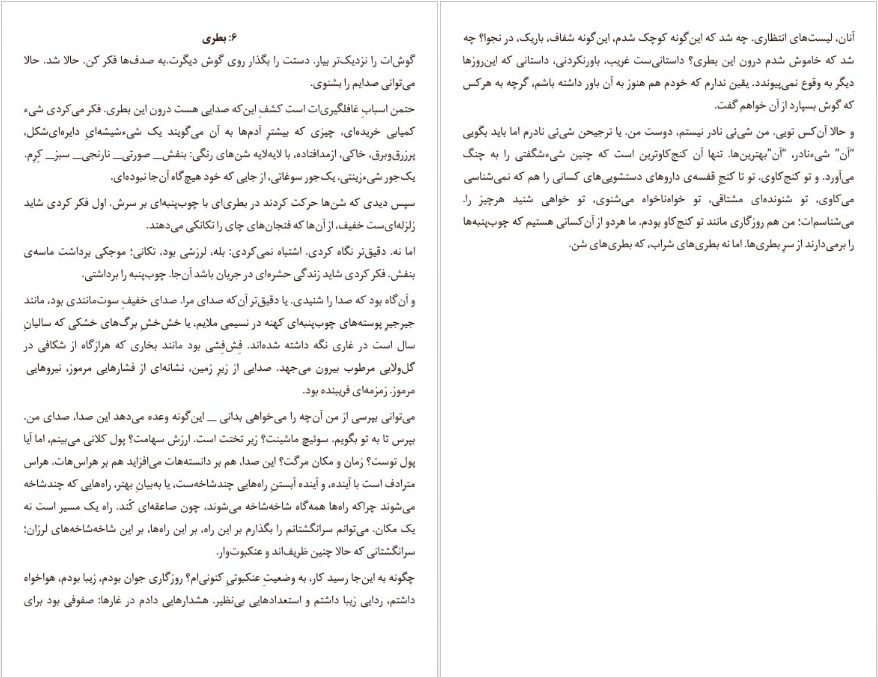 ۶: بطری
گوش‌ات را نزدیک‌تر بیار. دستت را بگذار روی گوش دیگرت.به صدف‌ها فکر کن. حالا شد. حالا
می‌توانی صدایم را بشنوی.
حتمن اسبابِ غافلگیری‌ات است کشفِ این‌که صدایی هست درون این بطری. فکر می‌کردی شیء
کمیابی خریده‌ای، چیزی که بیشترِ آدم‌ها به آن می‌گویند یک شیءشیشه‌ای دایره‌ای‌شکل،
پرزرق‌وبرق، خاکی، ازمدافتاده، با لایه‌لایه شن‌های رنگی: بنفش_ صورتی_ نارنجی_ سبز_ کِرِم.
یک‌جور شیءزینتی. یک‌جور سوغاتی، از جایی که خود هیچ‌گاه آن‌جا نبوده‌ای.
سپس دیدی که شن‌ها حرکت کردند در بطری‌ای با چوب‌پنبه‌ای بر سرش. اول فکر کردی شاید
زلزله‌ای‌ست خفیف، از آن‌ها که فنجان‌های چای را تکانکی می‌دهند.
اما نه. دقیق‌تر نگاه کردی. اشتباه نمی‌کردی: بله، لرزشی بود، تکانی؛ موجکی برداشت ماسه‌ی
بنفش. فکر کردی شاید زندگی حشره‌ای در جریان باشد آن‌جا. چوب‌پنبه را برداشتی.
و آن‌گاه بود که صدا را شنیدی. یا دقیق‌تر آن‌که صدای مرا. صدای خفیفِ سوت‌مانندی بود، مانند
جیرجیرِ پوسته‌های چوب‌پنبه‌ای کهنه در نسیمی ملایم، یا خش‌خشِ برگ‌های خشکی که سالیانِ
سال است در غاری نگه داشته شده‌اند. فِش‌فِشی بود مانند بخاری که هرازگاه از شکافی در
گل‌ولایی مرطوب بیرون می‌جهد. صدایی از زیرِ زمین، نشانه‌ای از فشارهایی مرموز، نیروهایی
مرموز. زمزمه‌ای فریبنده بود.
می‌توانی بپرسی از من آن‌چه را می‌خواهی بدانی _ این‌گونه وعده می‌دهد این صدا، صدای من.
بپرس تا به تو بگویم. سوئیچ ماشینت؟ زیر تختت است. ارزش سهامت؟ پول کلانی می‌بینم، اما آیا
پول توست؟ زمان و مکان مرگت؟ این صدا، هم بر دانسته‌هات می‌افزاید هم بر هراس‌هات. هراس
مترادف است با آینده، و آینده آبستنِ راه‌هایی چندشاخه‌ست، یا به‌بیانِ بهتر، راه‌هایی که چندشاخه
می‌شوند چراکه راه‌ها همه‌گاه شاخه‌شاخه می‌شوند، چون صاعقه‌ای کُند. راه یک مسیر است نه
یک مکان. می‌توانم سرانگشتانم را بگذارم بر این راه، بر این راه‌ها، بر این شاخه‌شاخه‌های لرزان؛
سرانگشتانی که حالا چنین ظریف‌اند و عنکبوت‌وار.
چگونه به این‌جا رسید کار، به وضعیتِ عنکبوتیِ کنونی‌ام؟ روزگاری جوان بودم، زیبا بودم، هواخواه
داشتم، ردایی زیبا داشتم و استعدادهایی بی‌نظیر. هشدارهایی دادم در غارها: صفوفی بود برای
آنان، لیست‌های انتظاری. چه شد که این‌گونه کوچک شدم، این‌گونه شفاف، باریک، در نجوا؟ چه
شد که خاموش شدم درون این بطری؟ داستانی‌ست غریب، باورنکردنی، داستانی که این‌روزها
دیگر به وقوع نمی‌پیوندد. یقین ندارم که خودم هم هنوز به آن باور داشته باشم، گرچه به هرکس
که گوش بسپارد از آن خواهم گفت.
و حالا آن‌کس تویی. من شی‌ئی نادر نیستم، دوست من. یا ترجیحن شی‌ئی نادرم اما باید بگویی
"آن" شیءنادر، "آن"بهترین‌ها. تنها آن کنج‌کاوترین است که چنین شیءشگفتی را به چنگ
می‌آورد. و تو کنج‌کاوی. تو تا کنجِ قفسه‌ی داروهای دستشویی‌های کسانی را هم که نمی‌شناسی
می‌کاوی، تو شنونده‌ای مشتاقی، تو خواه‌ناخواه می‌شنوی، تو خواهی شنید هرچیز را.
می‌شناسم‌ات؛ من هم روزگاری مانند تو کنج‌کاو بودم. ما هردو از آن‌کسانی هستیم که چوب‌پنبه‌ها
را برمی‌دارند از سرِ بطری‌ها. اما نه بطری‌های شراب، که بطری‌های شن.